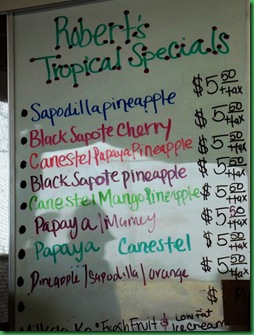 Robert's
Tropical Specials
Sapodilla pineapple $5.50 +tax
Black Sapote Cherry $5.50 +tax
Canestel Papaya Pineapple $5.50 +tax
Black Sapote pineapple $5.50 +tax
Canestel Mango Pineapple $5.50 +tax
Papaya / Mamey $5.50 +tax
Papaya Canestel $5.50 +tax
Pineapple / Sapodilla / orange $5.50 +tax
Fresh Fruit & Low Fat Ice cream